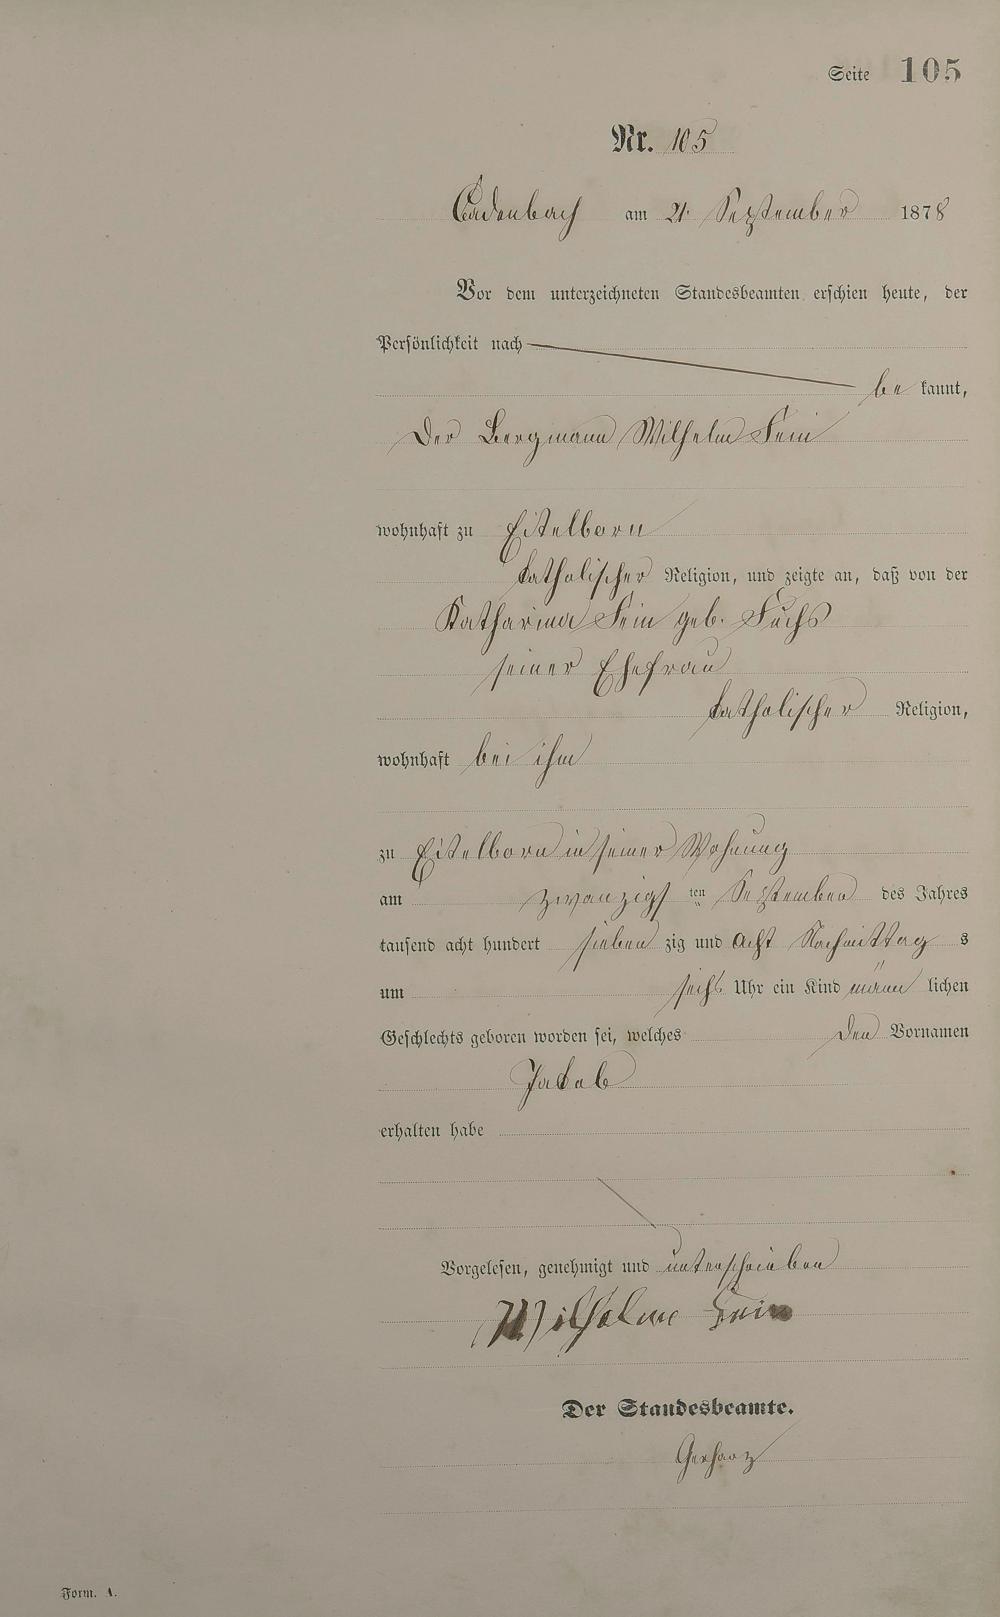 Seite 105
Nr. 105
Cadenbach am 21. September 1878
Vor dem unterzeichneten Standesbeamten erschien heute, der
Persönlichkeit nach
be kannt,
der Bergmann Wilhelm Fein
wohnhaft zu Eitelborn
katholischer Religion, und zeigte an, daß von der
Katharina Fein geb. Fuchs
seiner Ehefrau
katholischer Religion,
wohnhaft bei ihm
zu Eitelborn in seiner Wohnung
am zwanzigs ten September des Jahres
tausend acht hundert sieben zig und acht Nachmittag s
um sechs Uhr ein Kind männ lichen
Geschlechts geboren worden sei, welches den Vornamen
Jakob
erhalten habe
Vorgelesen, genehmigt und unterschrieben
Wilhelm Fein
Der Standesbeamte.
Gerharz
Form. A.